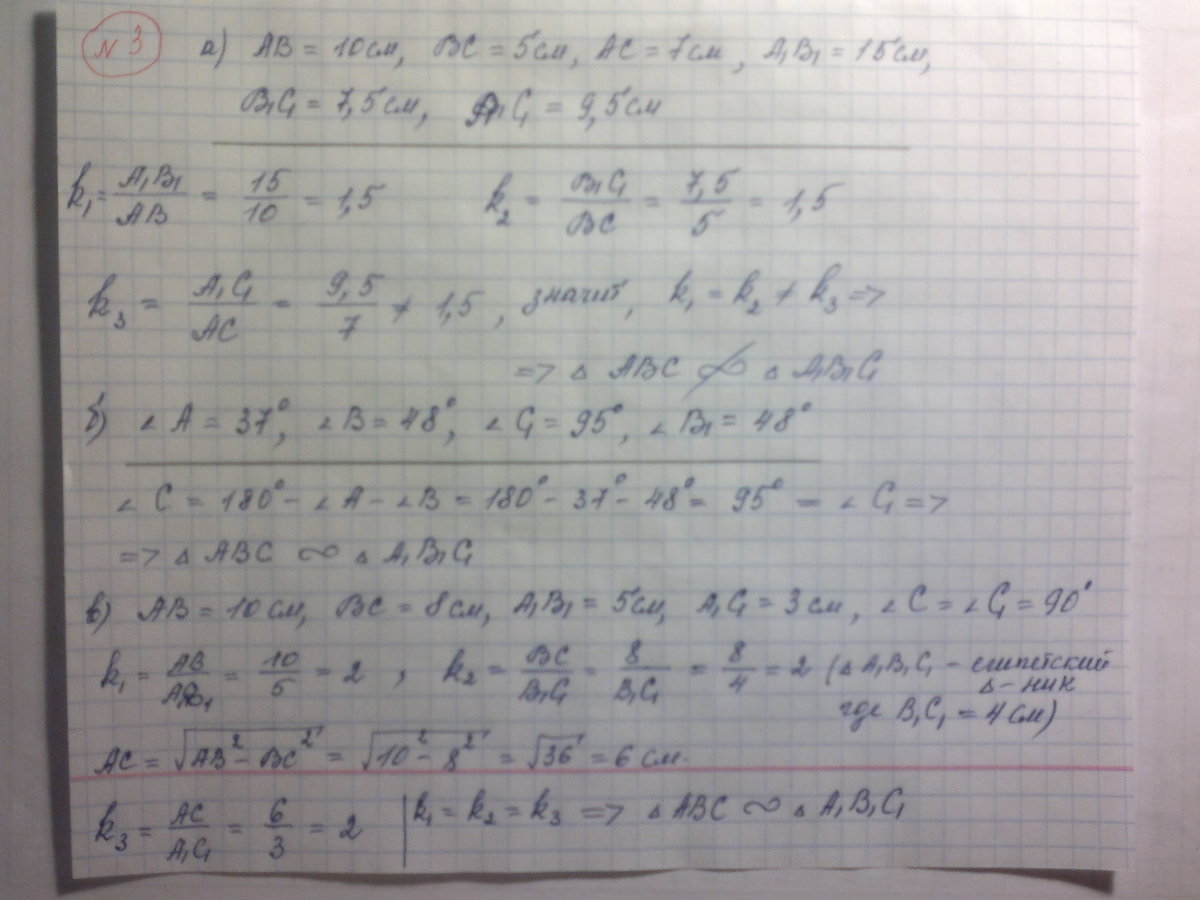 № 3 а) AB = 10 см, BC = 5 см, AC = 7 см, A₁B₁ = 15 см,
B₁C₁ = 7,5 см, A₁C₁ = 9,5 см
k₁ = A₁B₁/AB = 15/10 = 1,5 k₂ = B₁C₁/BC = 7,5/5 = 1,5
k₃ = A₁C₁/AC = 9,5/7 ≠ 1,5, значит, k₁ = k₂ ≠ k₃ =>
=> △ ABC ≁ △ A₁B₁C₁
б) ∠A = 37°, ∠B = 48°, ∠C₁ = 95°, ∠B₁ = 48°
∠C = 180° - ∠A - ∠B = 180° - 37° - 48° = 95° = ∠C₁ =>
=> △ ABC ∽ △ A₁B₁C₁
в) AB = 10 см, BC = 8 см, A₁B₁ = 5 см, A₁C₁ = 3 см, ∠C = ∠C₁ = 90°
k₁ = AB/A₁B₁ = 10/5 = 2, k₂ = BC/B₁C₁ = 8/B₁C₁ = 8/4 = 2 (△ A₁B₁C₁ - египетский
△-ник
где B₁C₁ = 4 см)
AC = √(AB² - BC²) = √(10² - 8²) = √36 = 6 см.
k₃ = AC/A₁C₁ = 6/3 = 2 | k₁ = k₂ = k₃ => △ ABC ∽ △ A₁B₁C₁